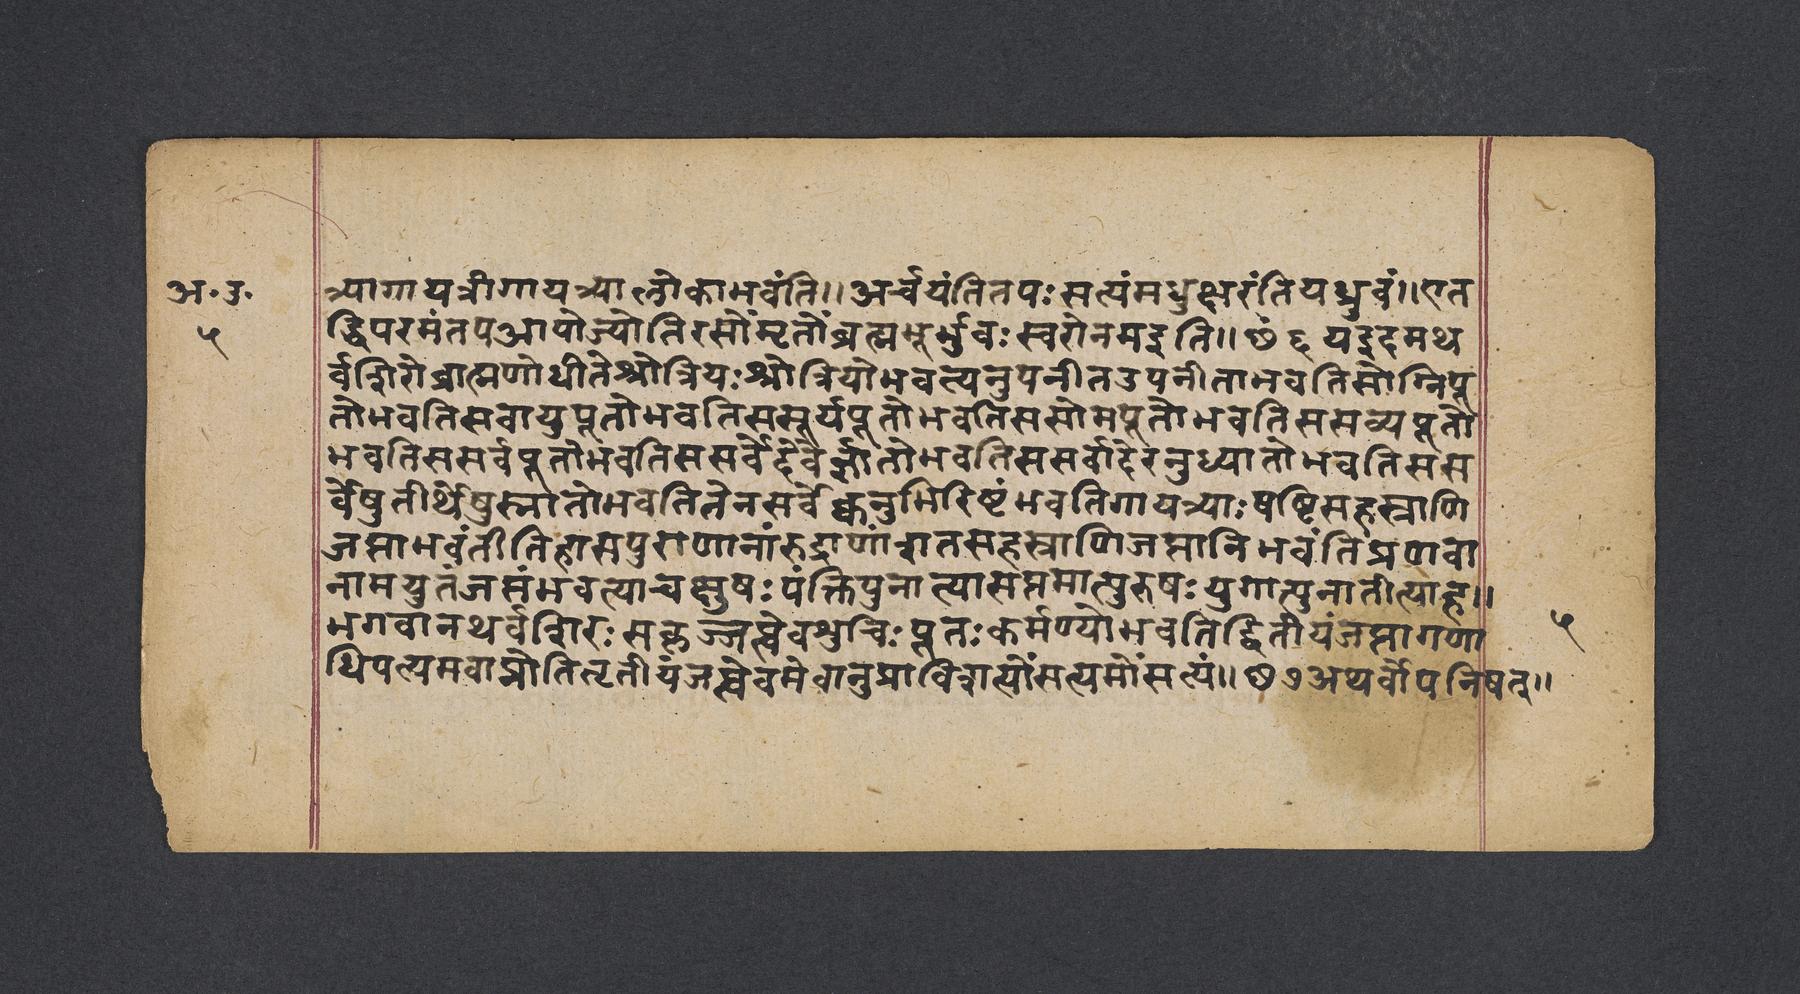 अ॰उ॰
५
त्र्यागायत्रीगायत्र्यालोकाभवंति॥अर्चयंतितपःसत्यंमधुक्षरंतियध्रुवं॥एत
द्धिपरमंतपआपोज्योतिरसोंमृतोंब्रह्मभूर्भुवःस्वरोनमइति॥छं६यइदमथ
र्वशिरोब्राह्मणोधीतेश्रोत्रियःश्रोत्रियोभवत्यनुपनीतउपनीताभवतिसोग्निपू
तोभवतिसवायुपूतोभवतिससूर्यपूतोभवतिससोमपूतोभवतिससत्यपूतो
भवतिससर्वपूतोभवतिससर्वैर्देवैर्ज्ञातोभवतिससर्वोदेरनुध्यातोभवतिसस
र्वेषुतीर्थेषुस्नातोभवतितेनसर्वैःक्रतुभिरिष्टंभवतिगायत्र्याःषष्टिसहस्राणि
जप्ताभवंतीतिहासपुराणानांरुद्राणांशतसहस्राणिजप्तानिभवंतिप्रणवा
नामयुतंजप्तंभवत्याचक्षुषःपंक्तिंपुनात्यासप्तमात्पुरुषःयुगात्पुनातीत्याह॥
भगवानथर्वशिरःसकृज्जप्त्वेवशुचिःपूतःकर्मण्योभवतिद्वितीयंजप्त्वागणा
५
धिपत्यमवाप्नोतितृतीयंजप्त्वेवमेवानुप्राविशत्योंसत्यमोंसत्यं॥छ७अथर्वोपनिषत्॥